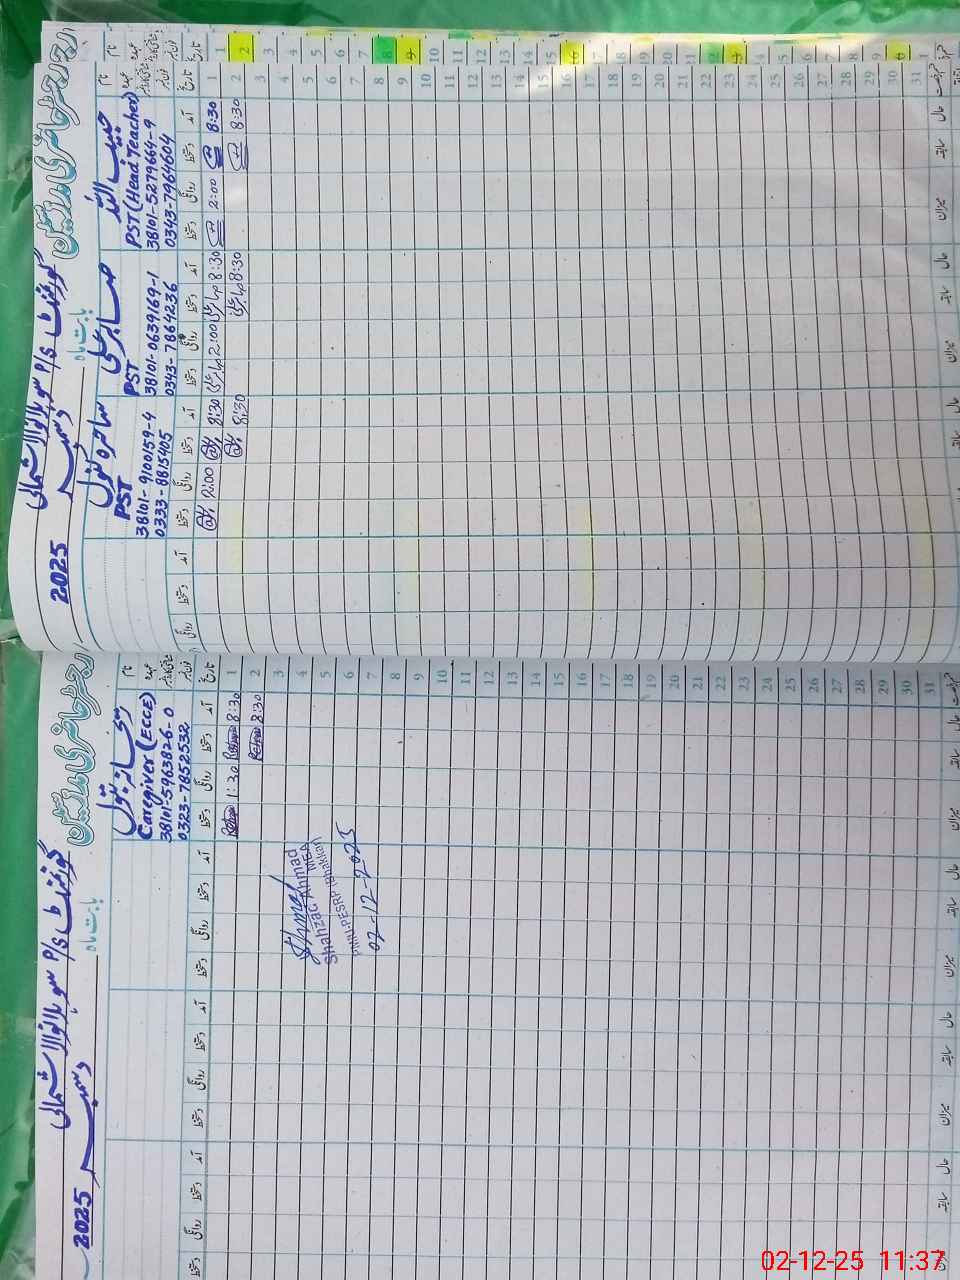 رجسٹر حاضری ملازمین
گورنمنٹ P/S
بابت ماہ
دسمبر
2025
نام
عہدہ
شناختی کارڈ نمبر
فون نمبر
حبیب اللہ
PST (Head Teacher)
38101-5279664-9
0343-7964604
صابر علی
PST
38101-0639169-1
0343-7864236
ساجدہ کنول
PST
38101-9100159-4
0333-8815405
تاریخ آمد دستخط روانگی دستخط آمد دستخط روانگی دستخط آمد دستخط روانگی دستخط آمد دستخط روانگی
1 8:30 2:00 8:30 2:00 8:30 2:00
2 8:30 8:30 8:30
3
4
5
6
7
8
9
10
11
12
13
14
15
16
17
18
19
20
21
22
23
24
25
26
27
28
29
30
31
حال سابقہ میزان حال سابقہ میزان حال سابقہ
رجسٹر حاضری ملازمین
گورنمنٹ P/S
بابت ماہ
دسمبر
2025
نام
عہدہ
شناختی کارڈ نمبر
فون نمبر
ریحانہ بتول
Caregiver (ECCE)
38101-5963826-0
0323-7852532
تاریخ آمد دستخط روانگی دستخط آمد دستخط روانگی دستخط آمد دستخط روانگی دستخط آمد دستخط روانگی دستخط
1 8:30 1:30
2 8:30
3
4
5
6
7
8
9
10
11
12
13
14
15
16
17
18
19
20
21
22
23
24
25
26
27
28
29
30
31
Shahzad Ahmad
MEA
PMIU-PESRP Bhakkar
02-12-2025
حال سابقہ میزان حال سابقہ میزان حال سابقہ میزان حال سابقہ میزان
02-12-25 11:37